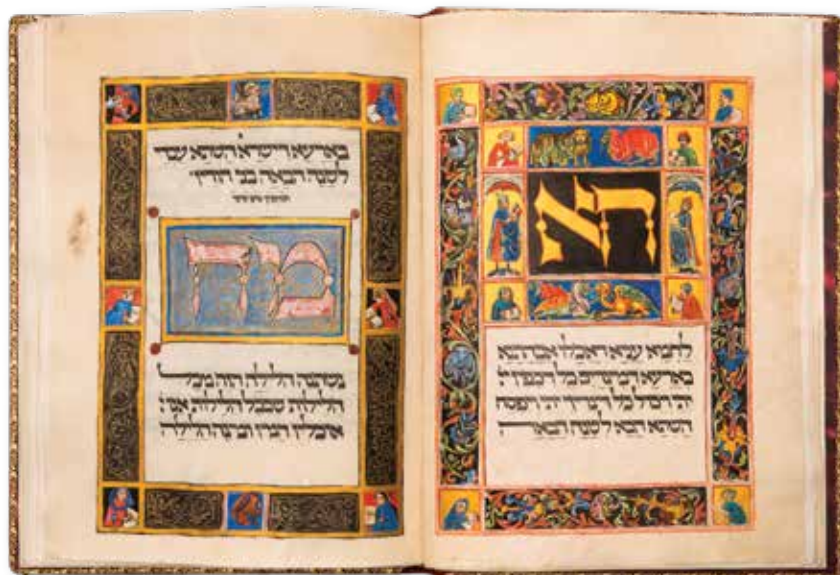 הא
לחמא עניא דאכלו אבהתנא
בארעא דמצרים כל דכפין
יתי ויכול כל דצריך יתי ויפסח
השתא הכא לשנה הבאה
בארעא דישרא השתא עבדי
לשנה הבאה בני חורין
מה
נשתנה הלילה הזה מכל
הלילות שבכל הלילות אנו
אוכלין חמץ ומצה הלילה